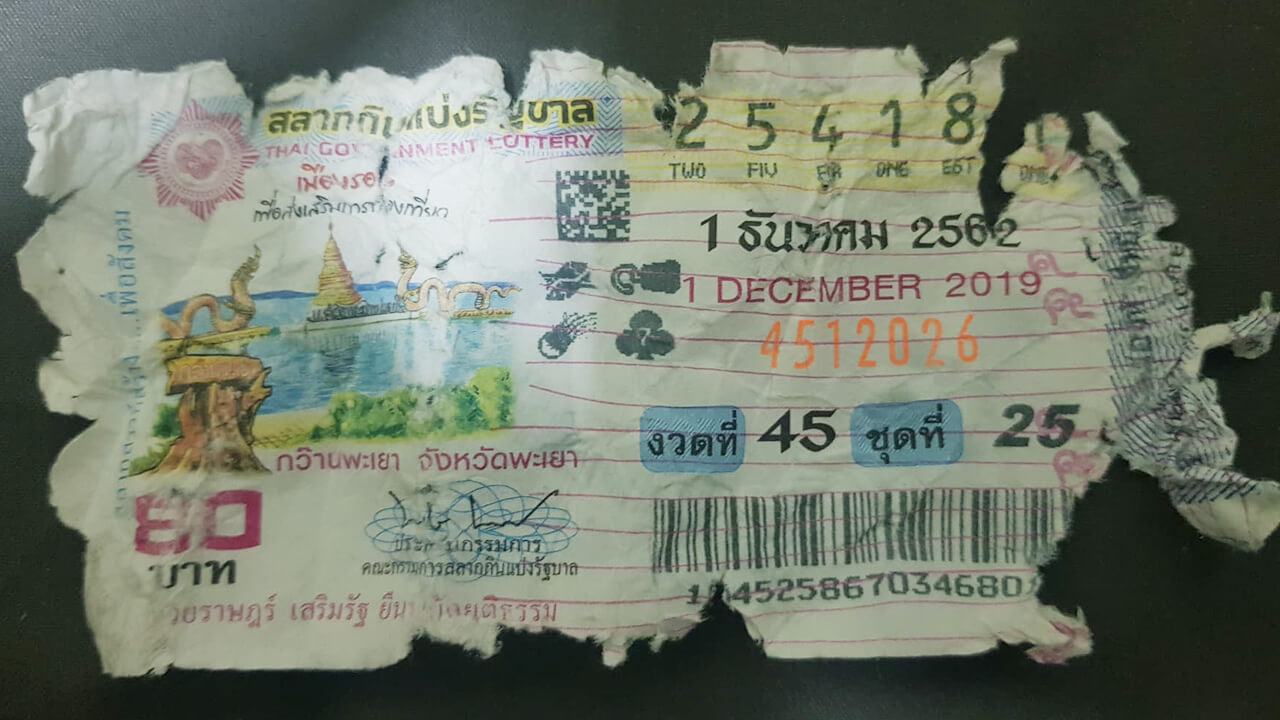 สลากกินแบ่งรัฐบาล
THAI GOVERNMENT LOTTERY
เมืองรอง
เพื่อส่งเสริมการท่องเที่ยว
2 5 4 1 8 1
TWO FIV FOR ONE EGT ONE
1 ธันวาคม 2562
1 DECEMBER 2019
4512026
งวดที่ 45 ชุดที่ 25
กว๊านพะเยา จังหวัดพะเยา
๘๐
บาท
ประธานกรรมการ
คณะกรรมการสลากกินแบ่งรัฐบาล
ราษฎร์ เสริมรัฐ ยืนหยัดยุติธรรม
เพื่อสังคม